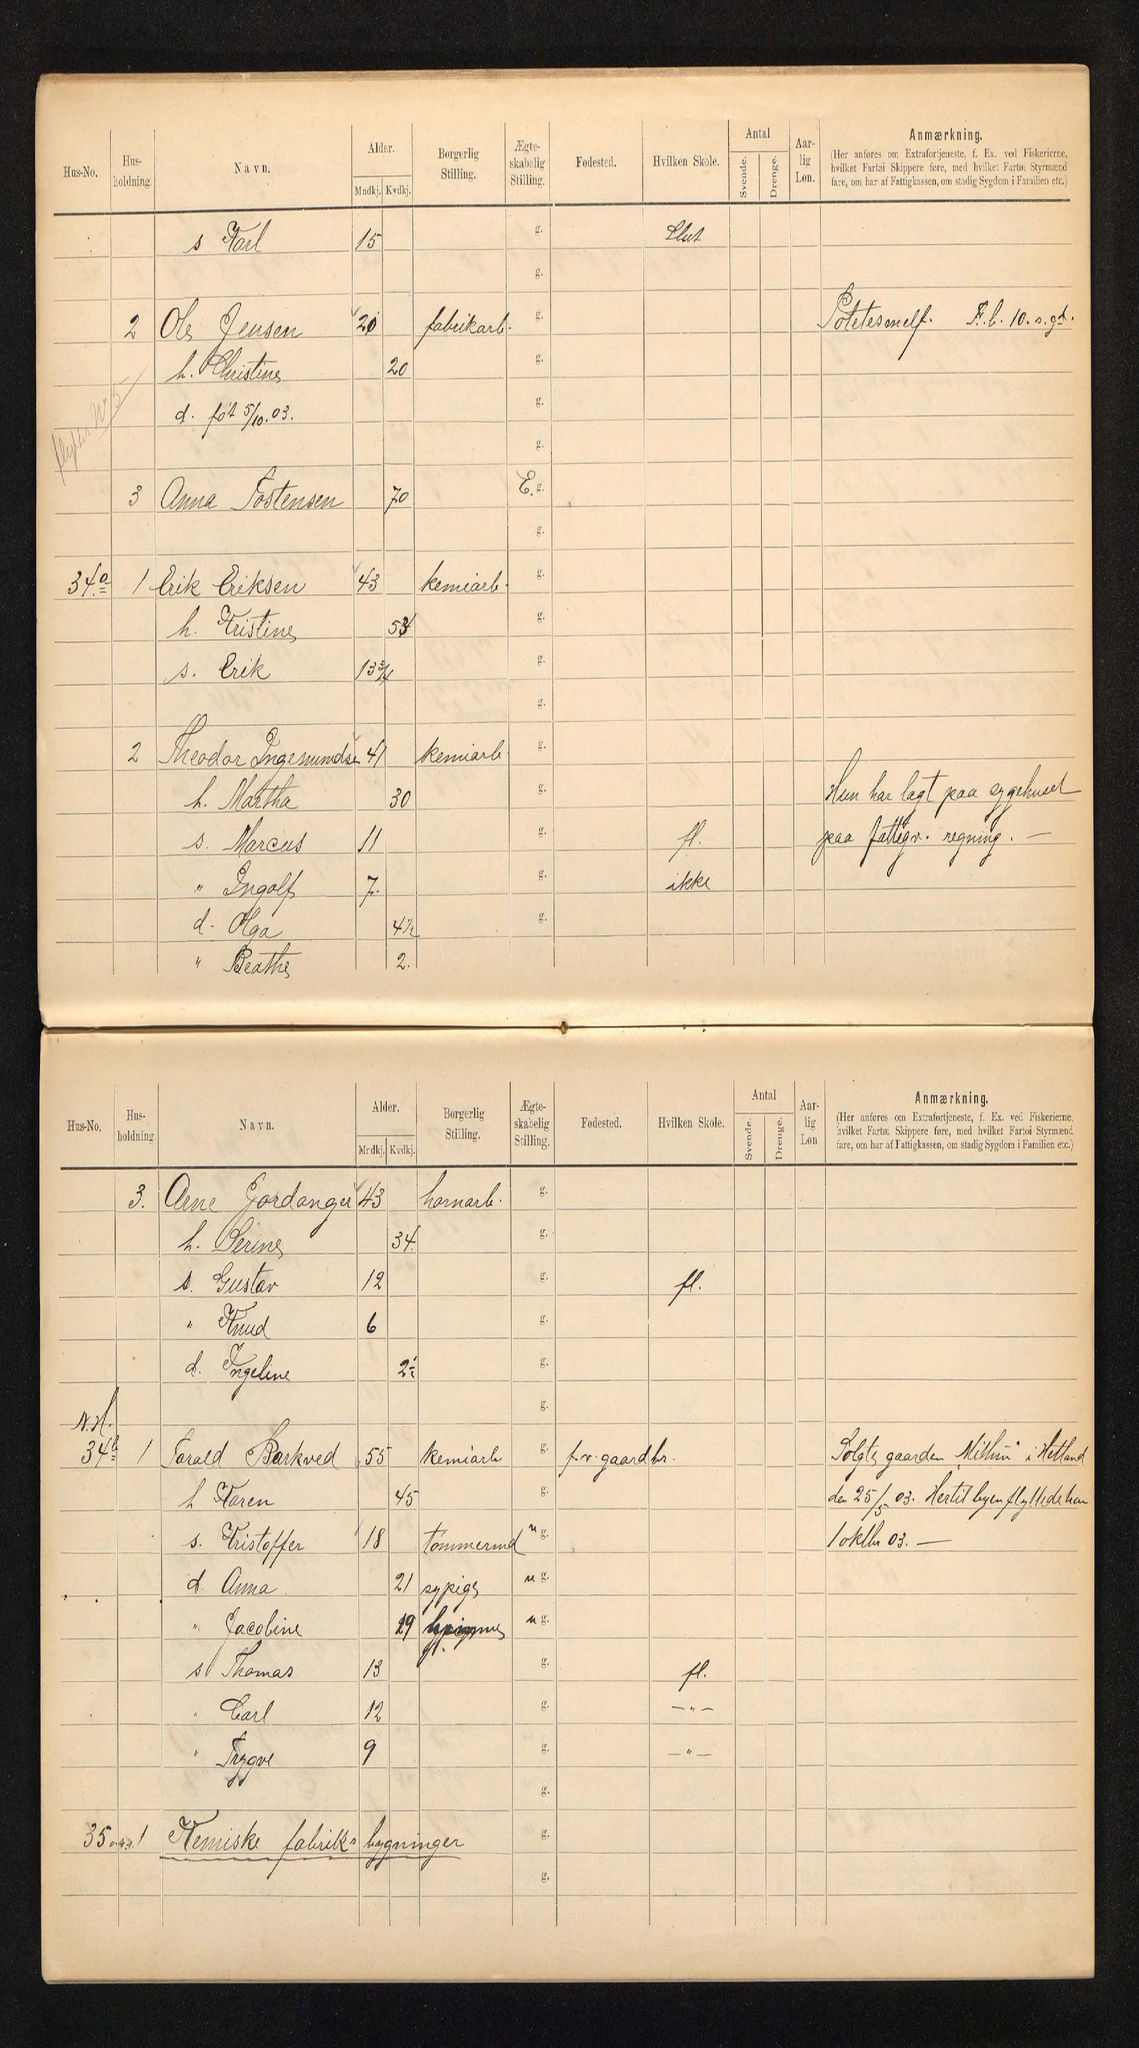 Hus-No. Hus-holdning. Navn. Alder. Mndkj. Kvdkj. Borgerlig Stilling. Ægte-skabelig Stilling. Fødested. Hvilken Skole. Antal Svende. Drenge. Aar-lig Løn. Anmærkning.
(Her anføres om Extrafortjeneste, f. Ex. ved Fiskerierne,
hvilket Fartøi Skippere føre, med hvilket Fartøi Styrmænd
fare, om har af Fattigkassen, om stadig Sygdom i Familien etc.)
s Karl 15 g. Slut
g.
2 Ole Jensen 20 fabrikarb. g. Potetesmelf. F. b. 10. s. gd.
h. Christine 20 g.
d. føt 5/10. 03. g.
g.
3 Anna Tostensen 70 E. g.
g.
34a 1 Erik Eriksen 43 kemiarb. g.
h. Kristine 54 g.
s. Erik 13 3/4 g.
g.
2 Theodor Ingemundsen 41 kemiarb g.
h. Martha 30 g. Hun har lagt paa sygehuset
s. Marcus 11 g. fl. paa fattigv. regning. —
" Ingolf 7 g. ikke
d. Olga 4 1/2 g.
" Beathe 2.
Hus-No. Hus-holdning Navn. Alder. Mrdkj. Kvdkj. Borgerlig Stilling. Ægte-skabelig Stilling. Fødested. Hvilken Skole. Antal Svende. Drenge. Aar-lig Løn Anmærkning.
(Her anføres om Extrafortjeneste, f. Ex. ved Fiskerierne,
hvilket Fartøi Skippere føre, med hvilket Fartøi Styrmænd
fare, om har af Fattigkassen, om stadig Sygdom i Familien etc.)
3. Arne Jordanger 43 havnarb. g.
h. Serine 34. g.
s. Gustav 12 g. fl.
" Knud 6 g.
d. Ingeline 2 1/2 g.
g.
N.H.
34b 1 Tarald Barkved 55 kemiarb g. f.v. gaardbr. Solgte gaarden "Mithun" i Hetland
h Karen 45 g. den 25/5 03. Hertil byen flyttede han
s. Kristoffer 18 tømmermd u g. 1 oktbr 03. —
d. Anna 21 sypige u g.
" Jacobine 29 u g.
s Thomas 13 g. fl.
" Carl 12 g. — " —
" Trygve 9 g. — " —
g.
35 1 Kemiske fabriks bygninger g.
g.